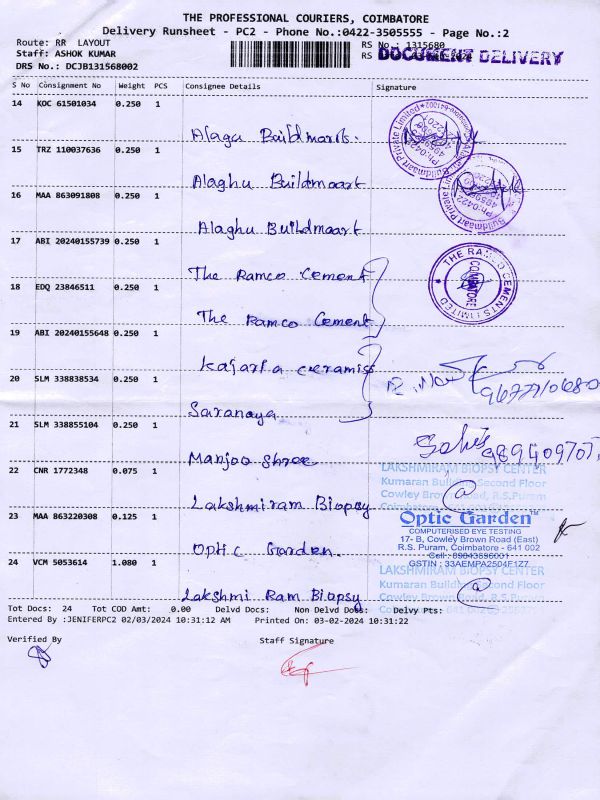 THE PROFESSIONAL COURIERS, COIMBATORE
Delivery Runsheet - PC2 - Phone No.:0422-3505555 - Page No.:2
Route: RR LAYOUT
RS No.: 1315680
Staff: ASHOK KUMAR
RS
DOCUMENT DELIVERY
DRS No.: DCJB131568002
S No Consignment No Weight PCS Consignee Details Signature
14 KOC 61501034 0.250 1 Alagu Buildmart.
15 TRZ 110037636 0.250 1 Alaghu Buildmaart
16 MAA 863091808 0.250 1 Alaghu Buildmaart
17 ABI 20240155739 0.250 1 The Ramco Cement
THE RAMCO CEMENTS LIMITED
COIMBATORE
18 EDQ 23846511 0.250 1 The Ramco Cement
19 ABI 20240155648 0.250 1 Kajaria Ceramics
20 SLM 338838534 0.250 1 Saranaya
21 SLM 338855104 0.250 1 Manjoo Shree
LAKSHMIRAM BIOPSY CENTER
Kumaran Building Second Floor
Cowley Brown Road, R.S.Puram
22 CNR 1772348 0.075 1 Lakshmiram Biopsy
Optic Garden™
COMPUTERISED EYE TESTING
17- B, Cowley Brown Road (East)
R.S. Puram, Coimbatore - 641 002
GSTIN : 33AEMPA2504F1Z7
23 MAA 863220308 0.125 1 Optic Garden.
LAKSHMIRAM BIOPSY CENTER
Kumaran Building Second Floor
Cowley Brown Road, R.S.Puram
24 VCM 5053614 1.080 1 Lakshmi Ram Biopsy
Tot Docs: 24 Tot COD Amt: 0.00 Delvd Docs: Non Delvd Docs: Delvy Pts:
Entered By :JENIFERPC2 02/03/2024 10:31:12 AM Printed On: 03-02-2024 10:31:22
Verified By Staff Signature